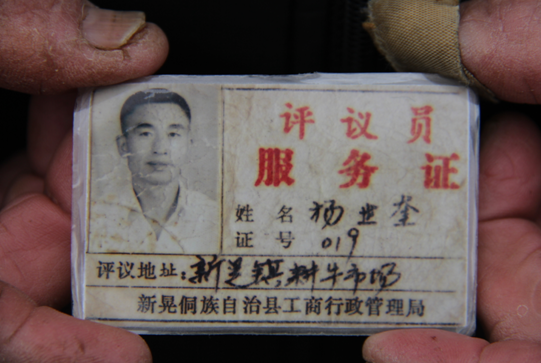 评议员
服务证
姓名 杨业奎
证号 019
评议地址：新晃镇耕牛市场
新晃侗族自治县工商行政管理局